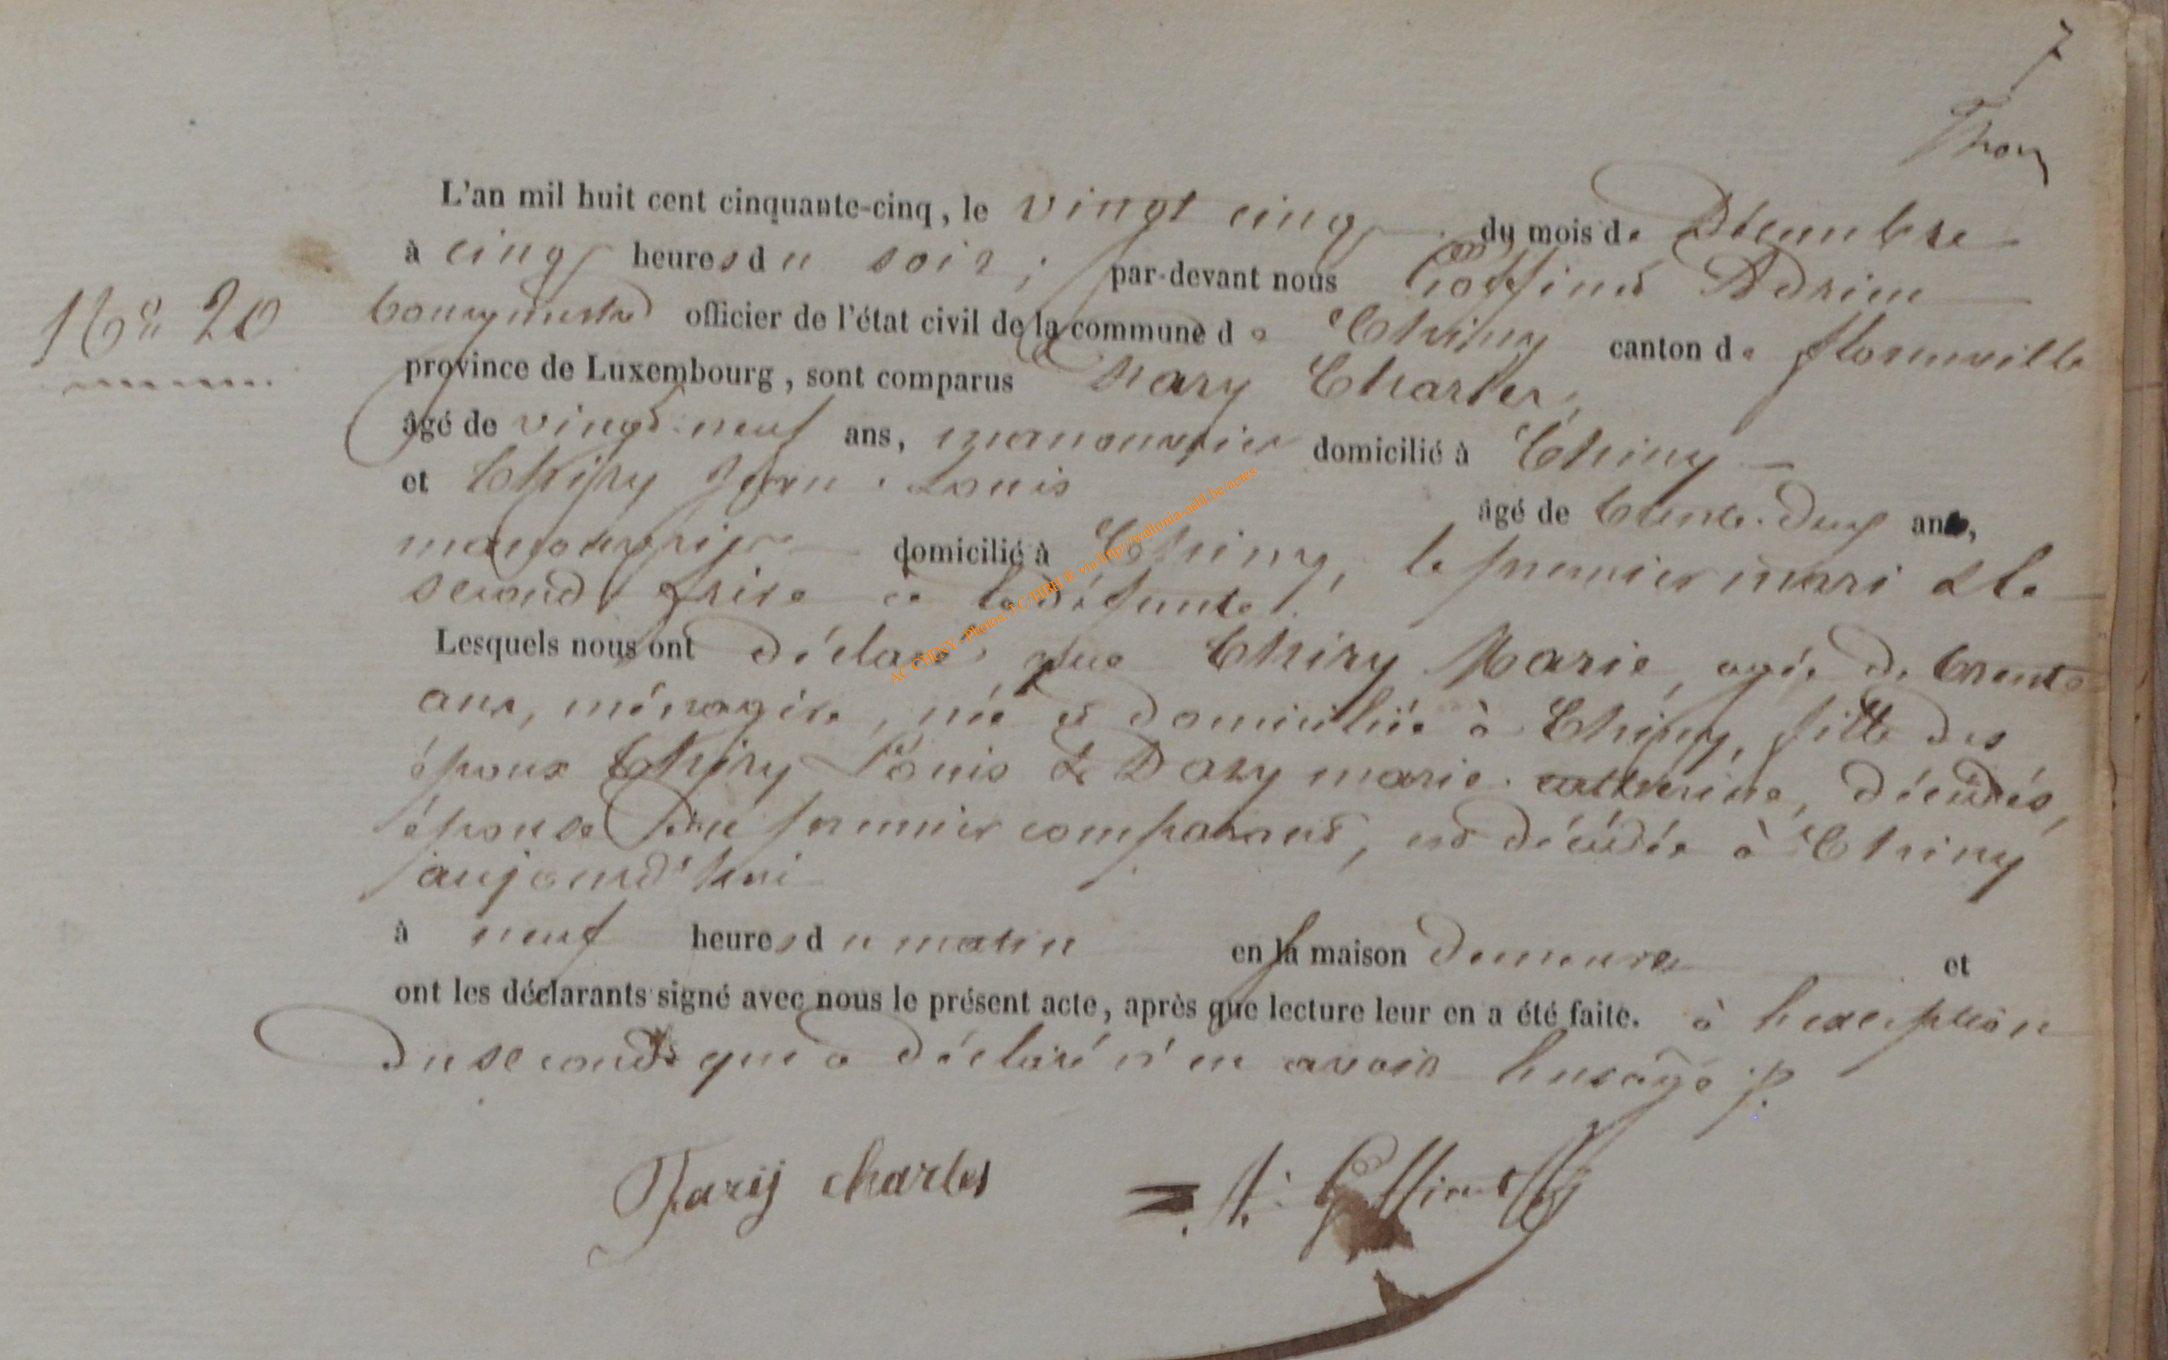 7
L'an mil huit cent cinquante-cinq, le vingt cinq du mois de Décembre
à cinq heures du soir, par-devant nous Goffinet Adrien
N° 20
bourgmestre officier de l'état civil de la commune de Chiny canton de florenville
province de Luxembourg, sont comparus Charles,
âgé de vingt-neuf ans, manouvrier domicilié à Chiny
et Thiry Jean-Louis âgé de trente-deux ans,
manouvrier domicilié à Chiny, le premier mari & le
second frère à la défunte.
Lesquels nous ont déclaré que Thiry Marie, agée de trente
ans, ménagère, née et domiciliée à Chiny, fille des
époux Thiry Louis & marie-catherine, décédés,
épouse du premier comparant, est décédée à Chiny
aujourd'hui
à neuf heures du matin en la maison demeure et
ont les déclarants signé avec nous le présent acte, après que lecture leur en a été faite. à l'exception
du second qui a déclaré n'en avoir l'usage
charles A. Goffinet
AC CHINY - Photos via http://wallonia-asbl.be/actes